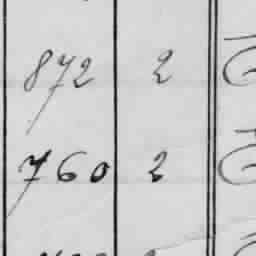 872 2
760 2